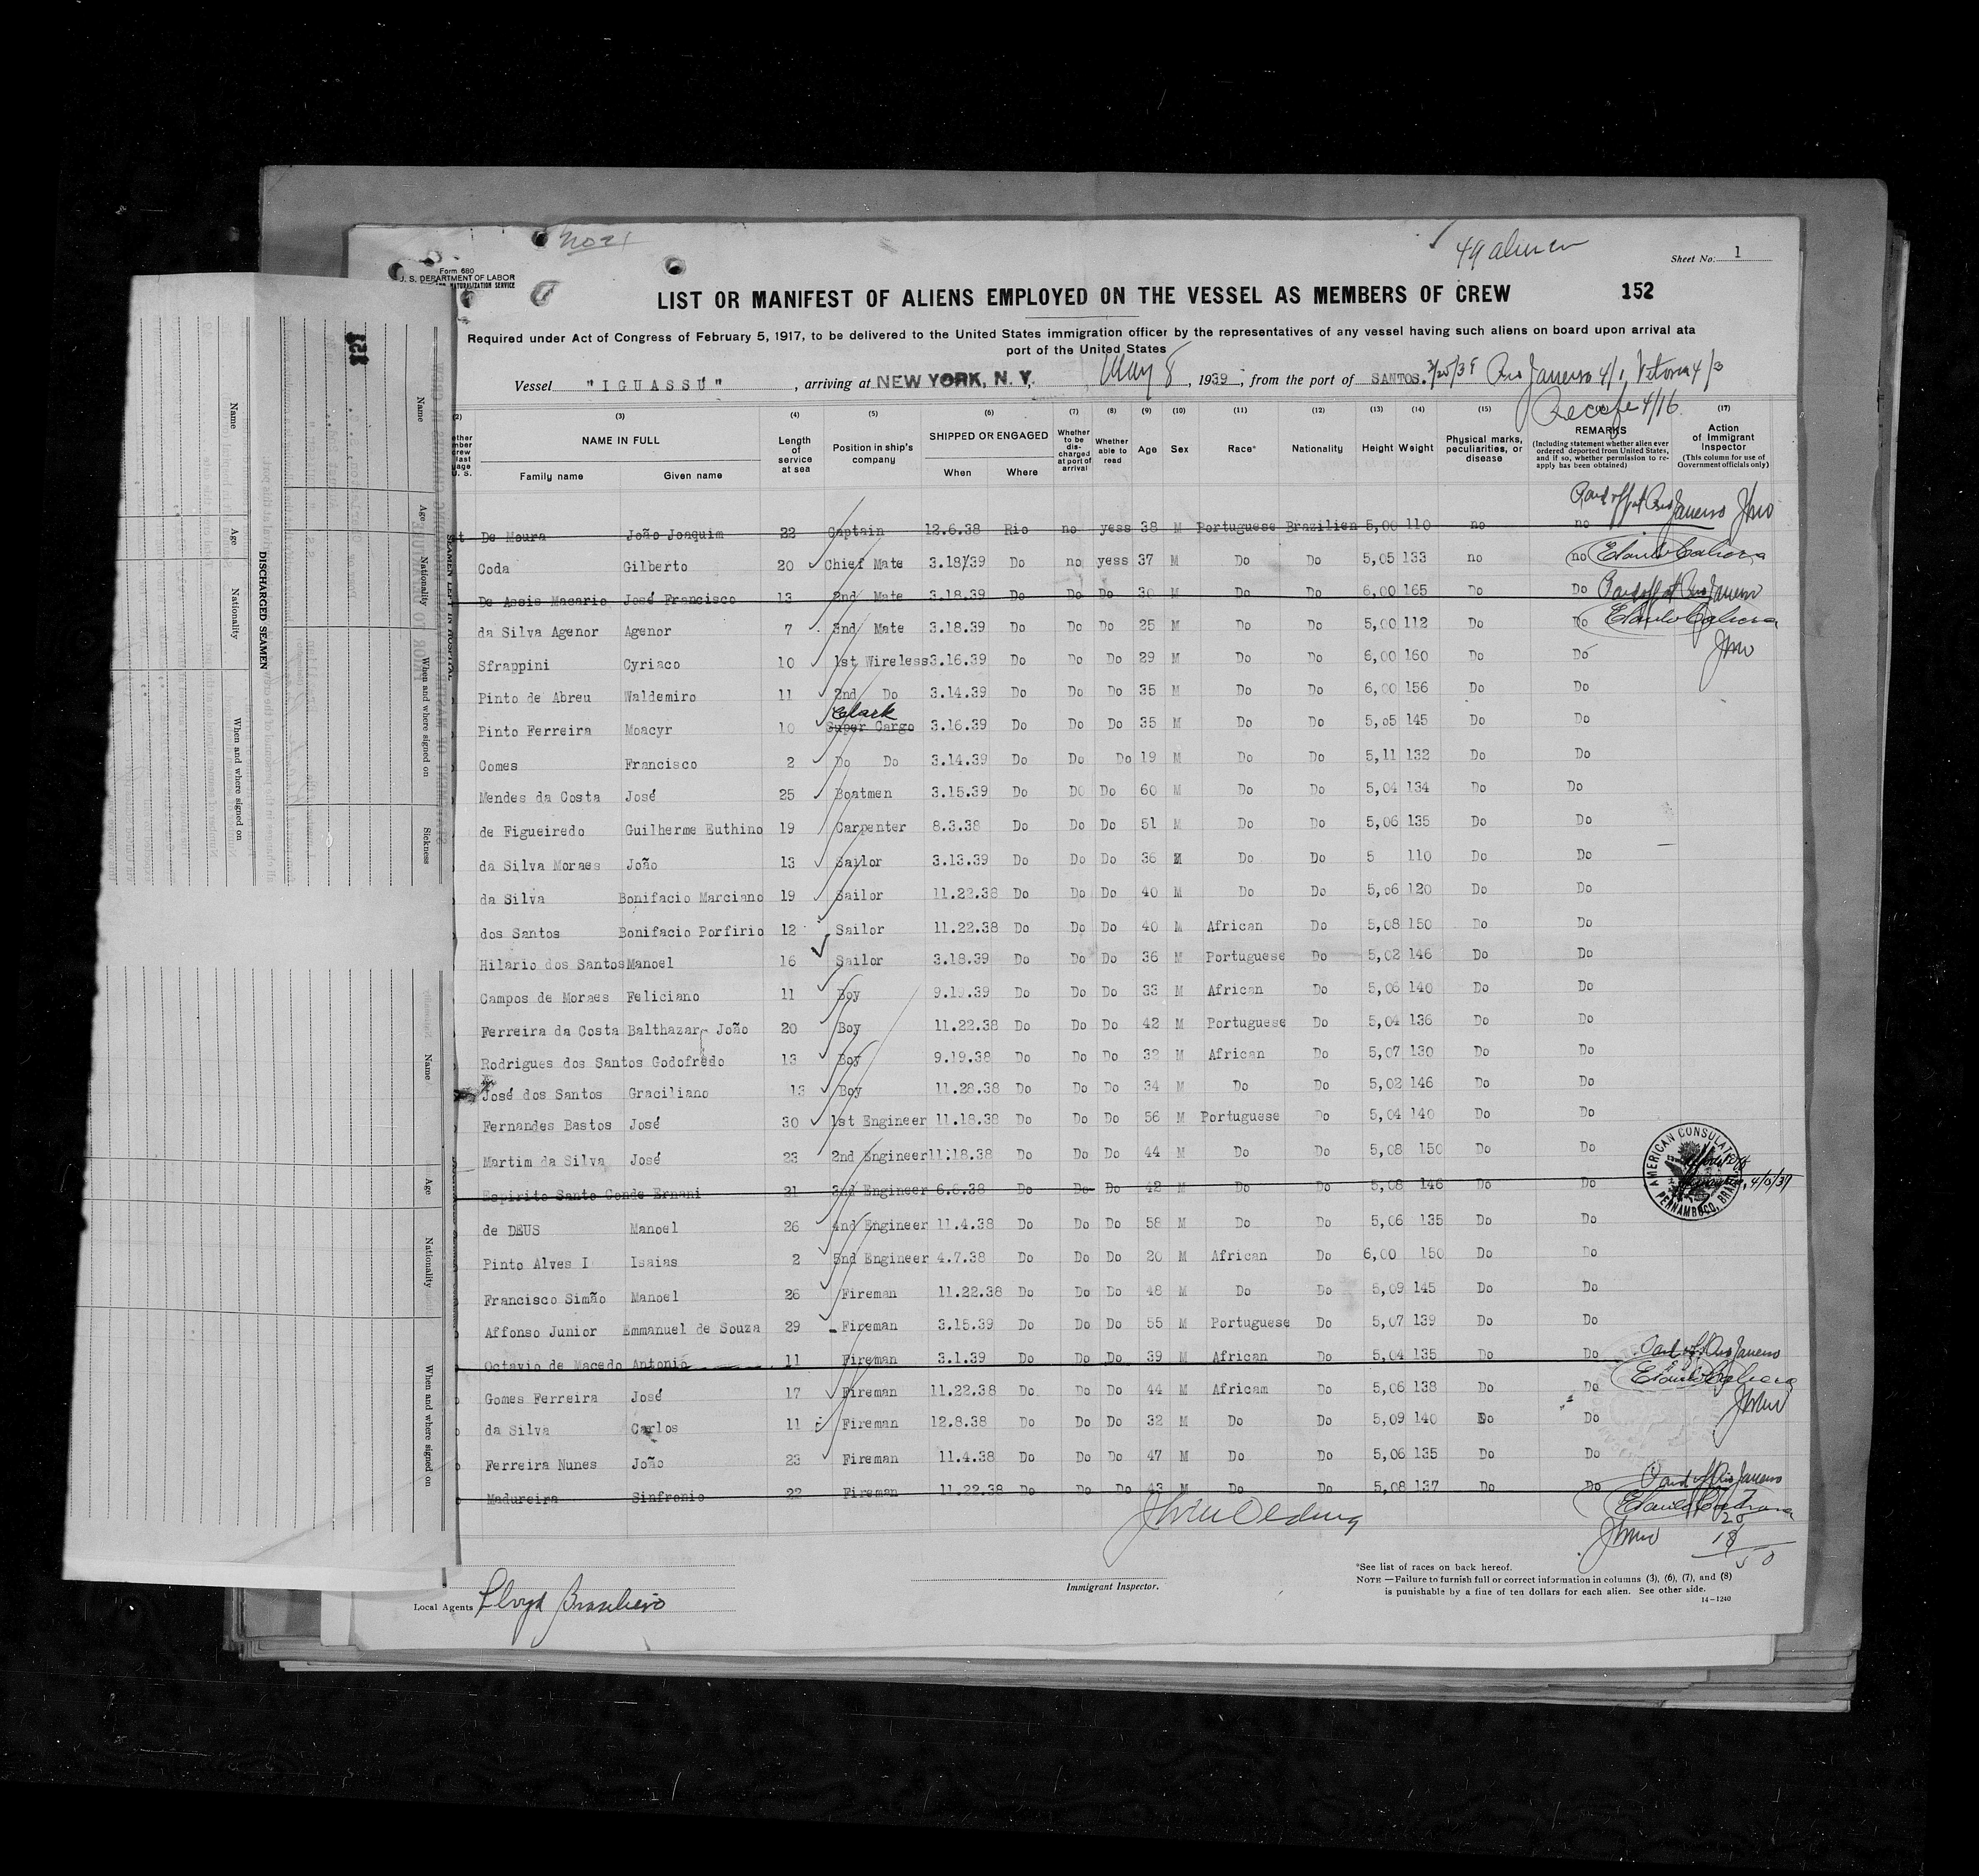 49 aliens
Sheet No. 1
Form 680
U. S. DEPARTMENT OF LABOR
NATURALIZATION SERVICE
LIST OR MANIFEST OF ALIENS EMPLOYED ON THE VESSEL AS MEMBERS OF CREW 152
Required under Act of Congress of February 5, 1917, to be delivered to the United States immigration officer by the representatives of any vessel having such aliens on board upon arrival ata
port of the United States
Vessel "IGUASSÚ", arriving at NEW YORK, N. Y., May 8, 1939, from the port of SANTOS. Rio Janeiro 4/1, Vitoria 4/3
Recife 4/16
(2) (3) (4) (5) (6) (7) (8) (9) (10) (11) (12) (13) (14) (15) (17)
NAME IN FULL Family name Given name Length of service at sea Position in ship's company SHIPPED OR ENGAGED When Where Whether to be discharged at port of arrival Whether able to read Age Sex Race* Nationality Height Weight Physical marks, peculiarities, or disease REMARKS (Including statement whether alien ever ordered deported from United States, and if so, whether permission to re-apply has been obtained) Action of Immigrant Inspector (This column for use of Government officials only)
Paid off at Rio Janeiro
De Moura João Joaquim 22 Captain 12.6.38 Rio no yess 38 M Portuguese Brazilien 5,00 110 no no
Coda Gilberto 20 Chief Mate 3.18/39 Do no yess 37 M Do Do 5,05 133 no no
De Assis Macario José Francisco 13 2nd Mate 3.18.39 Do Do Do 30 M Do Do 6,00 165 Do Do Paid off at Rio Janeiro
da Silva Agenor Agenor 7 3nd Mate 3.18.39 Do Do Do 25 M Do Do 5,00 112 Do Do
Sfrappini Cyriaco 10 1st Wireless 3.16.39 Do Do Do 29 M Do Do 6,00 160 Do Do
Pinto de Abreu Waldemiro 11 2nd Do 3.14.39 Do Do Do 35 M Do Do 6,00 156 Do Do
Clark
Pinto Ferreira Moacyr 10 Super Cargo 3.16.39 Do Do Do 35 M Do Do 5,05 145 Do Do
Gomes Francisco 2 Do Do 3.14.39 Do Do Do 19 M Do Do 5,11 132 Do Do
Mendes da Costa José 25 Boatmen 3.15.39 Do DO Do 60 M Do Do 5,04 134 Do Do
de Figueiredo Guilherme Euthino 19 Carpenter 8.3.38 Do Do Do 51 M Do Do 5,06 135 Do Do
da Silva Moraes João 13 Sailor 3.13.39 Do Do Do 36 M Do Do 5 110 Do Do
da Silva Bonifacio Marciano 19 Sailor 11.22.38 Do Do Do 40 M Do Do 5,06 120 Do Do
dos Santos Bonifacio Porfirio 12 Sailor 11.22.38 Do Do Do 40 M African Do 5,08 150 Do Do
Hilario dos Santos Manoel 16 Sailor 3.18.39 Do Do Do 36 M Portuguese Do 5,02 146 Do Do
Campos de Moraes Feliciano 11 Boy 9.19.39 Do Do Do 33 M African Do 5,06 140 Do Do
Ferreira da Costa Balthazar João 20 Boy 11.22.38 Do Do Do 42 M Portuguese Do 5,04 136 Do Do
Rodrigues dos Santos Godofredo 13 Boy 9.19.38 Do Do Do 32 M African Do 5,07 130 Do Do
José dos Santos Graciliano 13 Boy 11.28.38 Do Do Do 34 M Do Do 5,02 146 Do Do
Fernandes Bastos José 30 1st Engineer 11.18.38 Do Do Do 56 M Portuguese Do 5,04 140 Do Do
Martim da Silva José 23 2nd Engineer 11.18.38 Do Do Do 44 M Do Do 5,08 150 Do Do
Espirito Santo Conde Ernani 21 3nd Engineer 6.6.38 Do Do Do 42 M Do Do 5,08 146 Do Do
AMERICAN CONSULATE PERNAMBUCO, BRAZIL
de DEUS Manoel 26 4nd Engineer 11.4.38 Do Do Do 58 M Do Do 5,06 135 Do Do
Pinto Alves I Isaias 2 5nd Engineer 4.7.38 Do Do Do 20 M African Do 6,00 150 Do Do
Francisco Simão Manoel 26 Fireman 11.22.38 Do Do Do 48 M Do Do 5,09 145 Do Do
Affonso Junior Emmanuel de Souza 29 Fireman 3.15.39 Do Do Do 55 M Portuguese Do 5,07 139 Do Do
Octavio de Macedo Antonio 11 Fireman 3.1.39 Do Do Do 39 M African Do 5,04 135 Do Do Paid off Rio Janeiro
Gomes Ferreira José 17 Fireman 11.22.38 Do Do Do 44 M Africam Do 5,06 138 Do Do
da Silva Carlos 11 Fireman 12.8.38 Do Do Do 32 M Do Do 5,09 140 Do Do
Ferreira Nunes João 23 Fireman 11.4.38 Do Do Do 47 M Do Do 5,06 135 Do Do
Madureira Sinfronio 22 Fireman 11.22.38 Do Do Do 43 M Do Do 5,08 137 Do Do Paid off Rio Janeiro
Immigrant Inspector.
*See list of races on back hereof.
NOTE—Failure to furnish full or correct information in columns (3), (6), (7), and (8)
is punishable by a fine of ten dollars for each alien. See other side.
14-1240
Local Agents Lloyd Brasileiro
151
DISCHARGED SEAMEN
SEAMEN LEFT IN HOSPITAL
Name Age Nationality When and where signed on
Name Age Nationality When and where signed on Sickness
Name Age Nationality When and where signed on